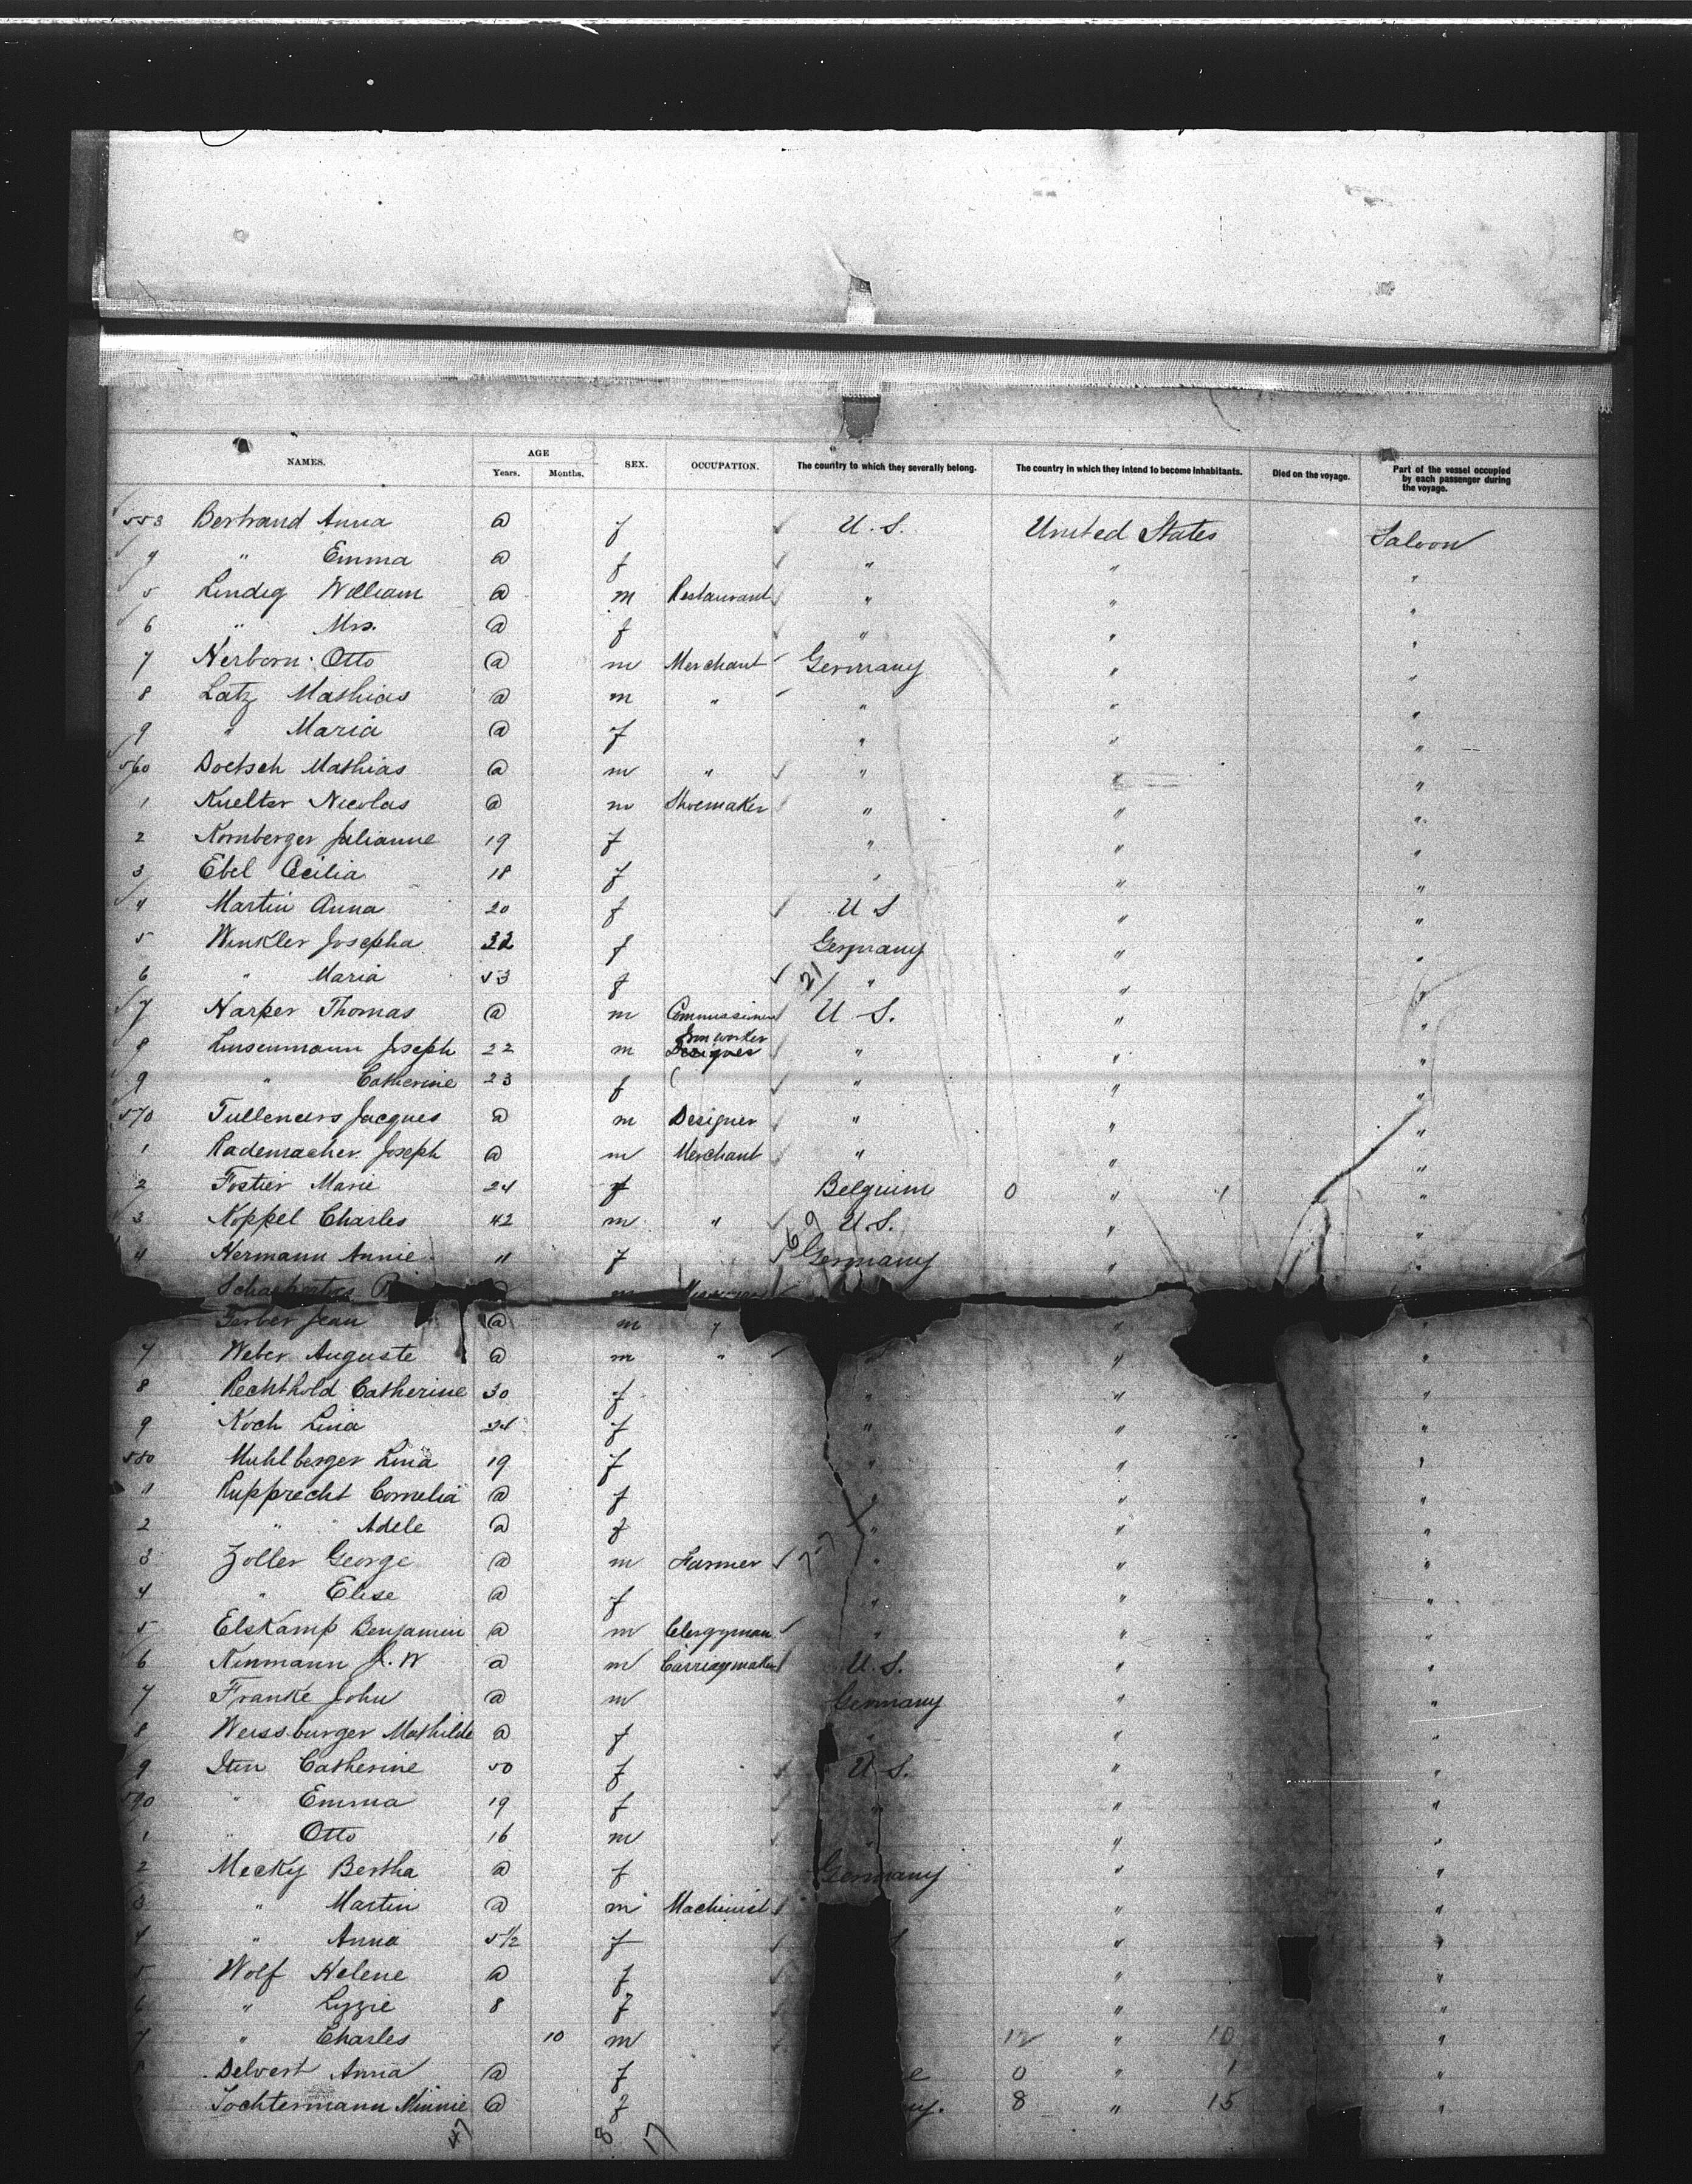 NAMES. AGE Years. Months. SEX. OCCUPATION. The country to which they severally belong. The country in which they intend to become inhabitants. Died on the voyage. Part of the vessel occupied by each passenger during the voyage.
553 Bertrand Anna @ f U. S. United States Saloon
4 " Emma @ f " " "
5 Lindig William @ m Restaurant " " "
6 " Mrs. @ f " " "
7 Nerborn Otto @ m Merchant Germany " "
8 Latz Mathias @ m " " " "
9 " Maria @ f " " "
560 Doetsch Mathias @ m " " " "
1 Kuelter Nicolas @ m Shoemaker " " "
2 Kornberger Julianne 19 f " " "
3 Ebel Cecilia 18 f " " "
4 Martin Anna 20 f U S " "
5 Winkler Josepha 32 f Germany " "
6 " Maria 53 f 21 " " "
7 Harper Thomas @ m U S. " "
8 Linsenmann Joseph 22 m Iron worker Designer " " "
9 " Catherine 23 f " " "
570 Tulleneers Jacques @ m Designer " " "
1 Rademacher Joseph @ m Merchant " " "
2 Fostier Marie 24 f Belgium 0 " 1 "
3 Koppel Charles 42 m " 69 U.S. " "
4 Hermann Annie 11 f Germany " "
m
Gerber Jean @ m " " "
7 Weber Auguste @ m " " "
8 Rechthold Catherine 30 f " " "
9 Koch Lina 24 f " " "
580 Muhlberger Lina 19 f " " "
1 Rupprecht Cornelia @ f " " "
2 " Adele @ f " " "
3 Zoller George @ m Farmer " " "
4 " Elise @ f " " "
5 Elskamp Benjamin @ m Clergyman " " "
6 Kinmann J. W @ m Carriagemaker U. S. " "
7 Franke John @ m Germany " "
8 Weissburger Mathilde @ f " " "
9 Iten Catherine 50 f U S. " "
590 " Emma 19 f " " "
1 " Otto 16 m " " "
2 Mecky Bertha @ f Germany " "
3 " Martin @ m Machinist " "
4 " Anna 5 1/2 f S " "
5 Wolf Helene @ f " "
6 " Lizzie 8 f " "
7 " Charles 10 m 12 " 10 "
8 Delvert Anna @ f e 0 " 1 "
Tochtermann Minnie @ f ny. 8 " 15 "
47 8 17